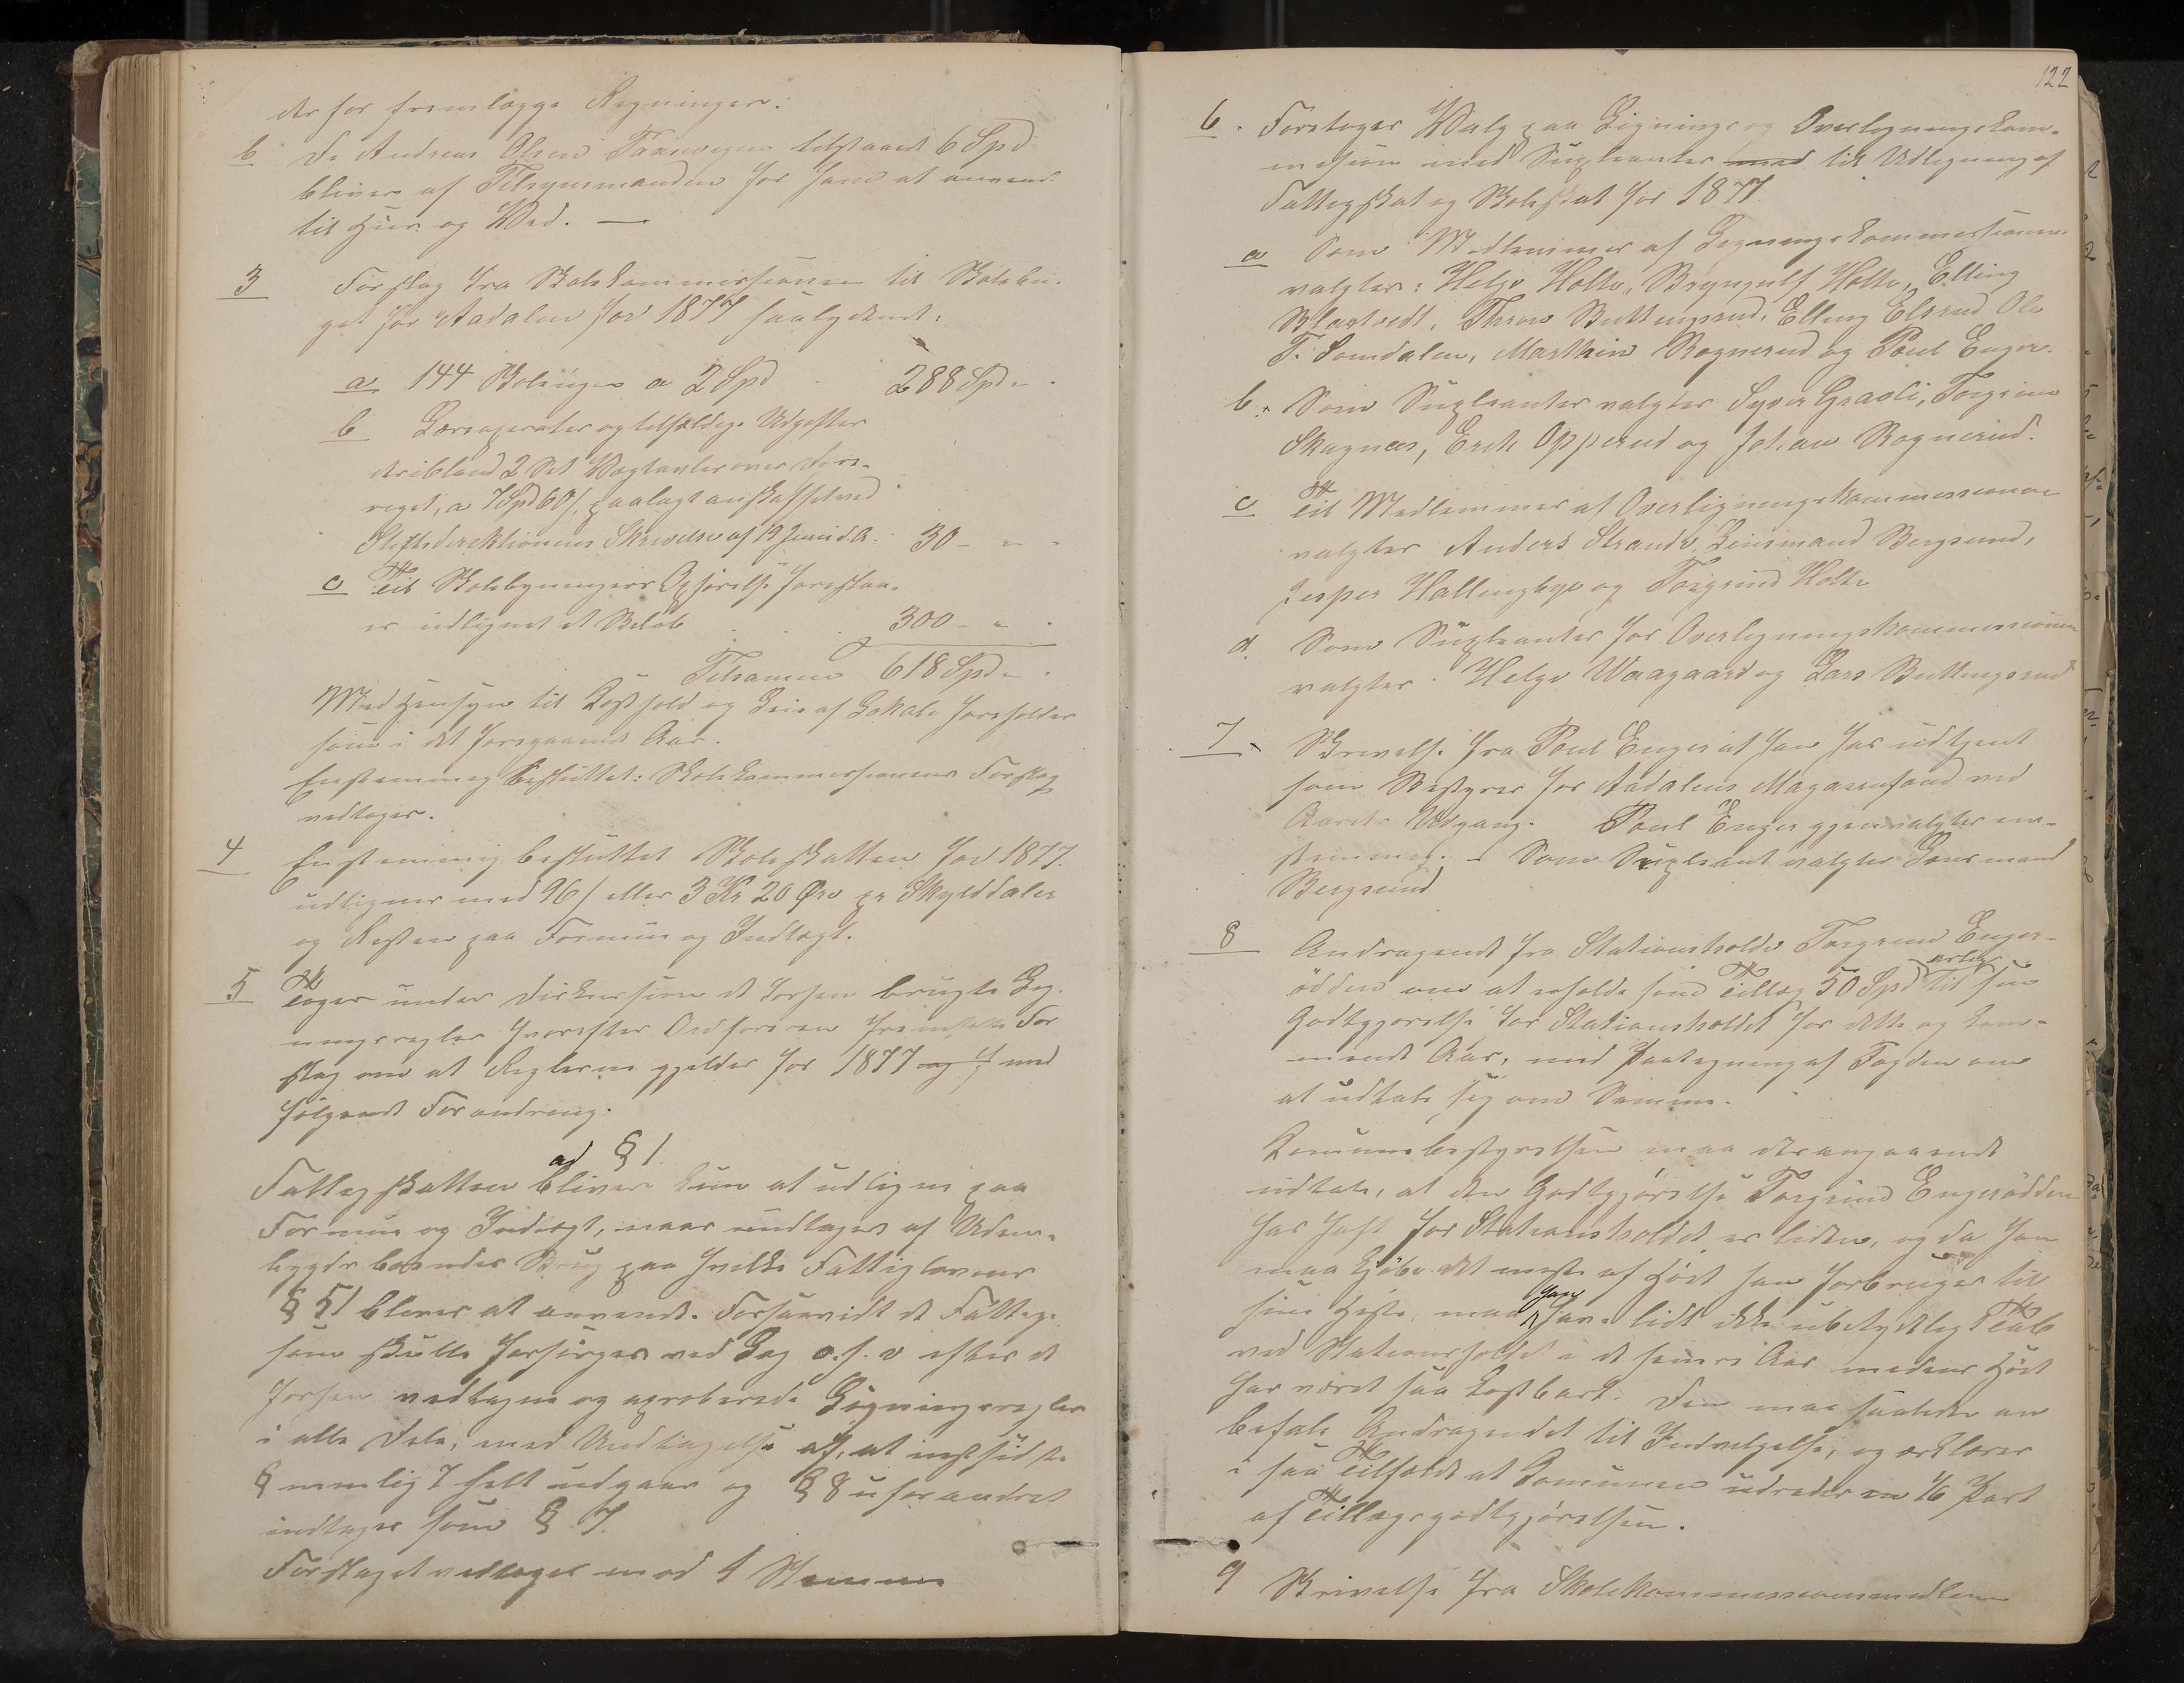 derfor fremlægge Regninger.
b De Andreas Olsen Taaenegen tilstaaede 6 Spd
bliver af Tilsynsmanden for ham at anvend.
til Huus og Ved. —
3 Forslag fra Skolekommissionen til Skolebu-
get for Aadalen for 1877 saalydende:
a 144 Skoleuger a 2 Spd 288 Spd "
b Læreaparater og tilfældige Udgifter
deriblandt 2 Set Vægtavler over Dyre-
riget, a 7 Spd 60 s, paalagt anskaffet ved
Stiftsdirektionens Skrivelse af 19 Juni d.A. 30 - "
c Til Skolebygningers Opførelse foreslaa-
es udlignet et Beløb 300 - "
Tilsammen 618 Spd "
Med Hensyn til Kosthold og Leie af Lokale forholdes
som i det foregaaende Aar.
Enstemmig besluttet: Skolekommissionens Forslag
vedtages.
4 Enstemmig besluttet Skoleskatten for 1877
udlignes med 96 s eller 3 Kr 20 Øre pr Skylddaler
og Resten paa Formue og Indtægt.
5 Toges under Diskussion de forhen brugte Lig-
ningsregler hvorefter Ordføreren fremsatte For
slag om at Reglerne gjelder for 1877 og f med
følgende Forandring.
ad § 1.
Fattigskatten bliver kun at udligne paa
Formue og Indtægt, naar undtages af Uden-
bygds boendes Brug paa hvilke Fattiglovens
§ 51 bliver at anvende. Forsaavidt de Fattige
som skulle forsørges ved Læg o.s.v efter de
forhen vedtagne og aproberede Ligningsregler
i alle Dele, med Undtagelse af, at næstsidste
§ nemlig 7 helt udgaar og § 8 uforandret
indtages som § 7.
Forslaget vedtages mod 1 Stemme
122
6. Foretoges Valg paa Lignings og Overlegningskom-
mission med Supleanter med til Udligning af
Fattigskat og Skoleskat for 1877.
a Som Medlemmer af Ligningskommissionen
valgtes: Helge Holte, Bryngulf Holte, Elling
Blaxtvedt, Thron Buttengsrud, Elling Elsrud Ole
T. Somdalen, Marthin Rognerud og Poul Enger.
b. Som Supleanter valgtes Syver Graali, Torgrim
Skagnæs, Erik Opperud og Johan Rognerud.
c Til Medlemmer af Overligningskommissionen
valgtes Anders Strande, Lensmand Bergsund,
Jesper Hallingbye og Torgrind Holte
d. Som Supleanter for Overligningskommissionen
valgtes Helge Waagaard og Lars Buttingsrud
7. Skrivelse fra Poul Enger at han har udtjent
som Bestyrer for Aadalens Magasinfond ved
Aarets Udgang. Poul Enger gjenvalgtes en-
stemmig. – Som Supleant valgtes Lensmand
Bergsund
8 Andragende fra Stationsholder Torgrind Enger-
ødden om at erholde som Tillæg 50 Spd aarlig til sin
Godtgjørelse for Stationsholdet for dette og kom-
mende Aar, med Paategning af Fogden om
at udtale sig om Samme.
Komunebestyrelsen maa derangaaende
udtale, at den Godtgjørelse Torgrind Engerødden
har haft for Stationsholdet er liden, og da han
maa kjøbe det meste af Høet han forbruger til
sine Heste, maa han have lidt ikke ubetydelig Tab
ved Stationsholdet i de senere Aar medens Høet
har været saa kostbart. Den maa saaledes an
befale Andragendet til Indvilgelse, og erklærer
i saa Tilfælde at Komunen udreder en 1/6 Part
af Tillægsgodtgjørelsen.
9 Skrivelse fra Skolekommissionsmedlem